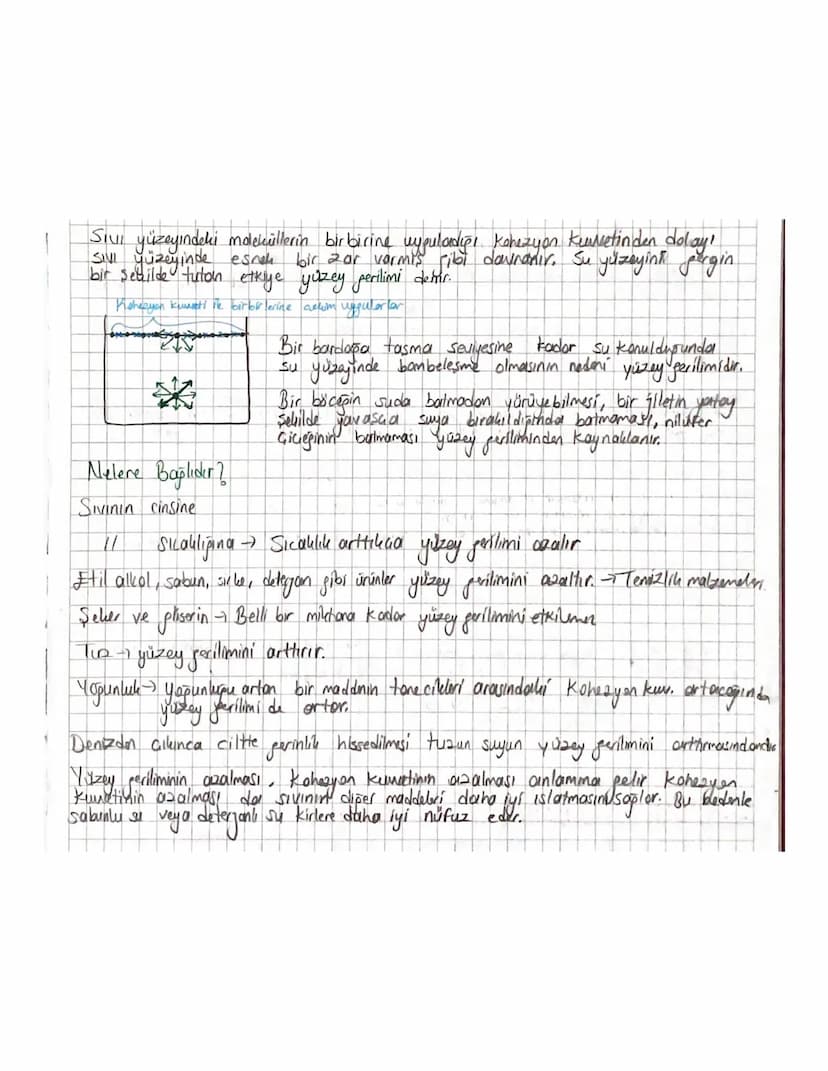 Sıvı yüzeyindeki moleküllerin birbirine uyguladığı kohezyon kuvvetinden dolayı
sıvı yüzeyinde esnek bir zar varmış gibi davranır. Su yüzeyini gergin
bir şekilde tutan etkiye yüzey gerilimi denir.
Kohezyon kuvveti ile birbirlerine çekim uygularlar
Bir bardağa taşma seviyesine kadar su konulduğunda
su yüzeyinde bombeleşme olmasının nedeni yüzey gerilimidir.
Bir böceğin suda batmadan yürüyebilmesi, bir jiletin yatay
şekilde yavaşça suya bırakıldığında batmaması, nilüfer
çiçeğinin batmaması yüzey geriliminden kaynaklanır.
Nelere Bağlıdır?
Sıvının cinsine
// Sıcaklığına → Sıcaklık arttıkça yüzey gerilimi azalır
Etil alkol, sabun, sirke, deterjan gibi ürünler yüzey gerilimini azaltır. → Temizlik malzemeleri
Şeker ve gliserin → Belli bir miktara kadar yüzey gerilimini etkilemez
Tuz → yüzey gerilimini arttırır.
Yoğunluk → Yoğunluğu artan bir maddenin tanecikleri arasındaki kohezyon kuv. artacağından
yüzey gerilimi de artar.
Denizden çıkınca ciltte gerinlik hissedilmesi tuzun suyun yüzey gerilimini arttırmasındandır
Yüzey geriliminin azalması, kohezyon kuvvetinin azalması anlamına gelir kohezyon
kuvvetinin azalması da sıvının diğer maddeleri daha iyi ıslatmasını sağlar. Bu nedenle
sabunlu su veya deterjanlı su kirlere daha iyi nüfuz eder.